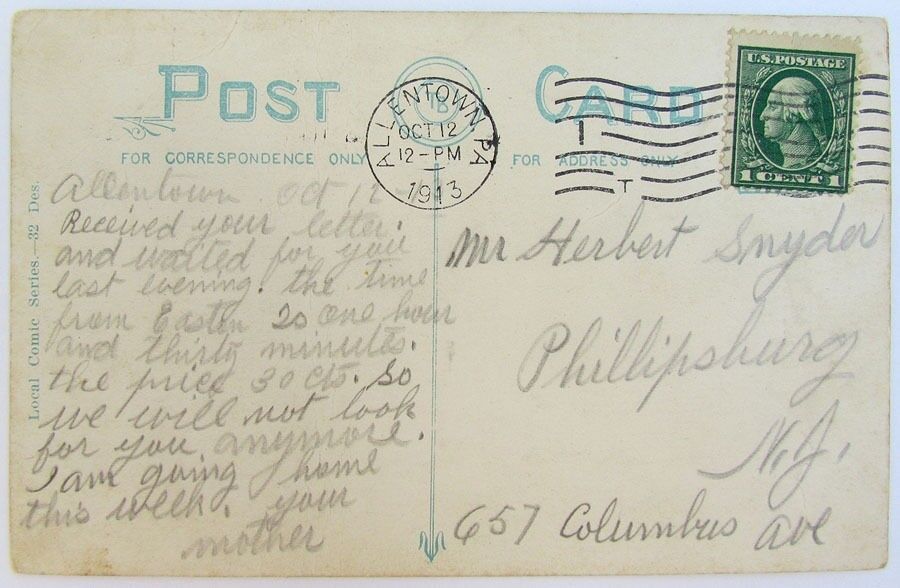 POST CARD
FOR CORRESPONDENCE ONLY
FOR ADDRESS ONLY
ALLENTOWN, PA
OCT 12
12-PM
1913
U.S. POSTAGE
1 CENT 1
Local Comic Series.—32 Des.
Allentown Oct 12
Received your letter.
and waited for you
last evening. the time
from Easten 20 one hour
and thirty minutes.
the price 30 cts. So
we will not look
for you anymore.
I am going home
this week. your
mother
Mr Herbert Snyder
Phillipsburg
N.J.
657 Columbus ave